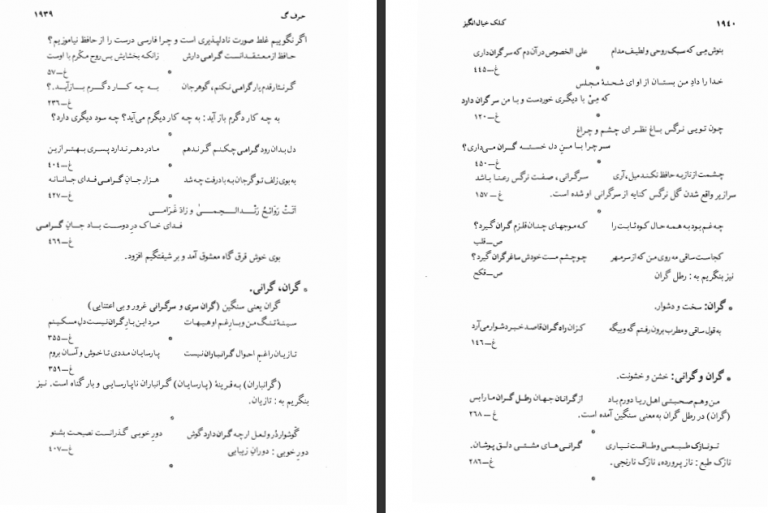 حرف گ
۱۹۳۹
اگر نگوییم غلط صورت نادلپذیری است و چرا فارسی درست را از حافظ نیاموزیم؟
حافظ از معتقدانست گرامی دارش
زانکه بخشایش بس روح مکرم با اوست
غ-۵۷
*
گر نثار قدم یار گرامی نکنم، گوهر جان
به چه کار دگرم باز آید.؟
غ-۲۳۶
به چه کار دگرم باز آید: به چه کار دیگرم می‌آید؟ چه سود دیگری دارد؟
*
دل بدان رود گرامی چکنم گر ندهم
مادر دهر ندارد پسری بهتر ازین
غ-۴۰۴
*
به بوی زلف تو گر جان به باد رفت چه شد
هزار جان گرامی فدای جانانه
غ-۴۲۷
*
اتت روائح رند الحمیٰ و زاد غرامی
فدای خاک در دوست باد جان گرامی
غ-۴۶۹
بوی خوش قرق گاه معشوق آمد و بر شیفتگیم افزود.
* گران، گرانی.
گران یعنی سنگین (گران سری و سرگرانی غرور و بی اعتنایی)
سینهٔ تنگ من و بار غم او هیهات
مرد این بار گران نیست دل مسکینم
غ-۳۵۵
تازیان را غم احوال گرانباران نیست
پارسایان مددی تا خوش و آسان بروم
غ-۳۵۹
(گرانباران) به قرینهٔ (پارسایان) گرانباران ناپارسایی و بار گناه است. نیز
بنگریم به: تازیان.
*
گوشوارهٔ در و لعل ار چه گران دارد گوش
دور خوبی گذرانست نصیحت بشنو
غ-۴۰۷
دور خوبی: دوران زیبایی
*
کلک خیال انگیز
۱۹۴۰
بنوش می که سبک روحی و لطیف مدام
علی الخصوص در آن دم که سر گران داری
غ-۴۴۵
*
خدا را داد من بستان از او ای شحنهٔ مجلس
که می با دیگری خوردست و با من سر گران دارد
غ-۱۲۰
*
چون تویی نرگس باغ نظر ای چشم و چراغ
سر چرا با من دل خسته گران می‌داری؟
غ-۴۵۰
*
چشمت از ناز به حافظ نکند میل، آری
سرگرانی، صفت نرگس رعنا باشد
غ-۱۵۷
سرازیر واقع شدن گل نرگس کنایه از سرگرانی او شده است.
*
چه غم بود به همه حال کوه ثابت را
که موجهای چنان قلزم گران گیرد؟
ص-قلب
کجاست ساقی مه روی من که از سر مهر
چو چشم مست خودش ساغر گران گیرد؟
ص-قکح
نیز بنگریم به: رطل گران
* گران: سخت و دشوار.
به قول ساقی و مطرب برون رفتم گه و بیگه
کزان راه گران قاصد خبر دشوار می‌آرد
غ-۱۴۶
* گران و گرانی: خشن و خشونت.
من و هم صحبتی اهل ریا دورم باد
از گرانان جهان رطل گران ما را بس
غ-۲۶۸
(گران) در رطل گران به معنی سنگین آمده است.
*
تو نازک طبعی و طاقت نیاری
گرانی های مشتی دلق پوشان.
غ-۲۸۶
نازک طبع: ناز پرورده، نازک نارنجی.
*